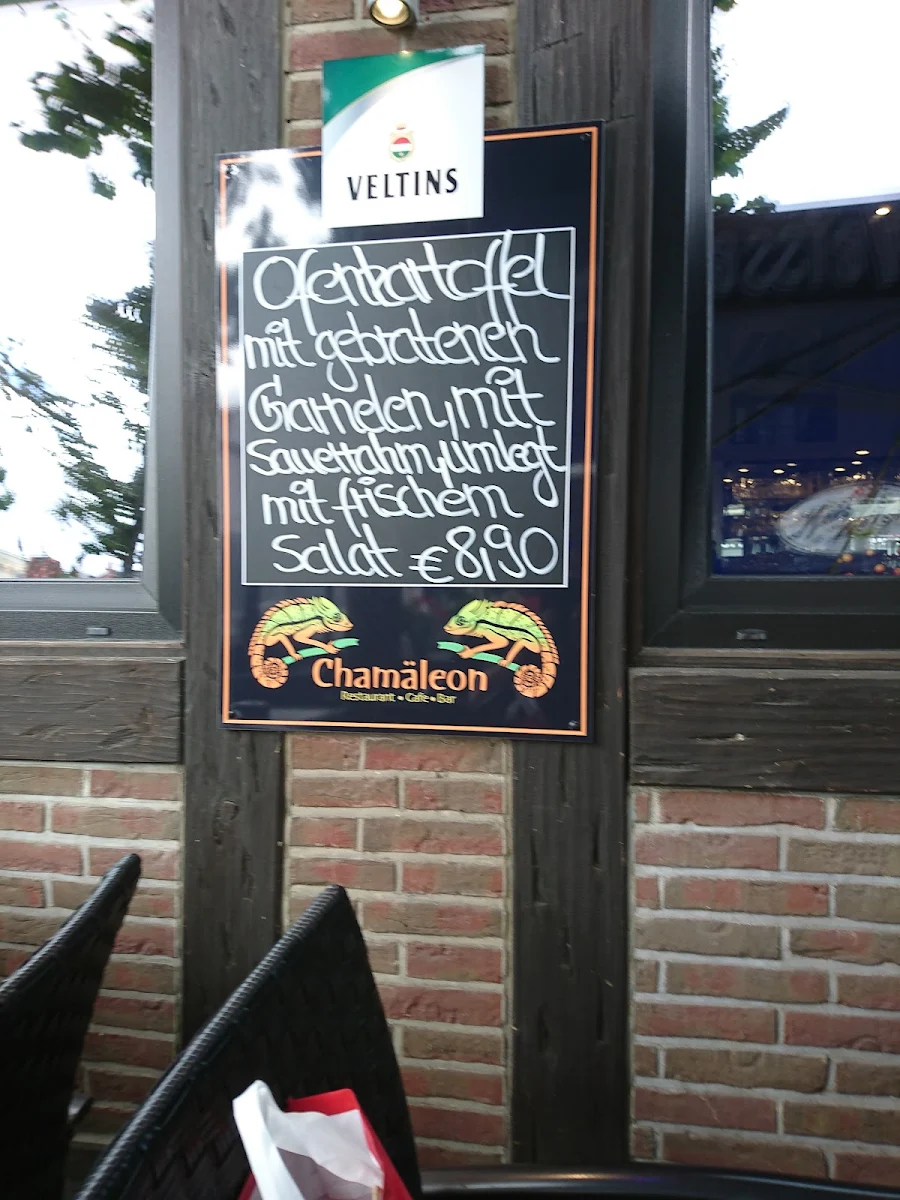 VELTINS
Ofenkartoffel
mit gebratenen
Garnelen, mit
Sauerrahm, umlegt
mit frischem
Salat €8,90
Chamäleon
Restaurant • Cafe • Bar